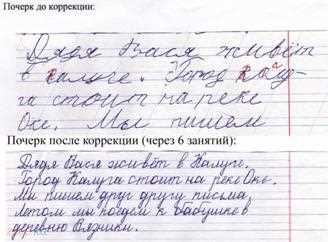 Почерк до коррекции:
Дядя Вася живёт
в Калуге. Город
га стоит на реке
Оке. Мы пишем
Почерк после коррекции (через 6 занятий):
Дядя Вася живёт в Калуге.
Город Калуга стоит на реке Оке.
Мы пишем друг другу письма.
Летом мы поедем к бабушке в
деревню Вязники.